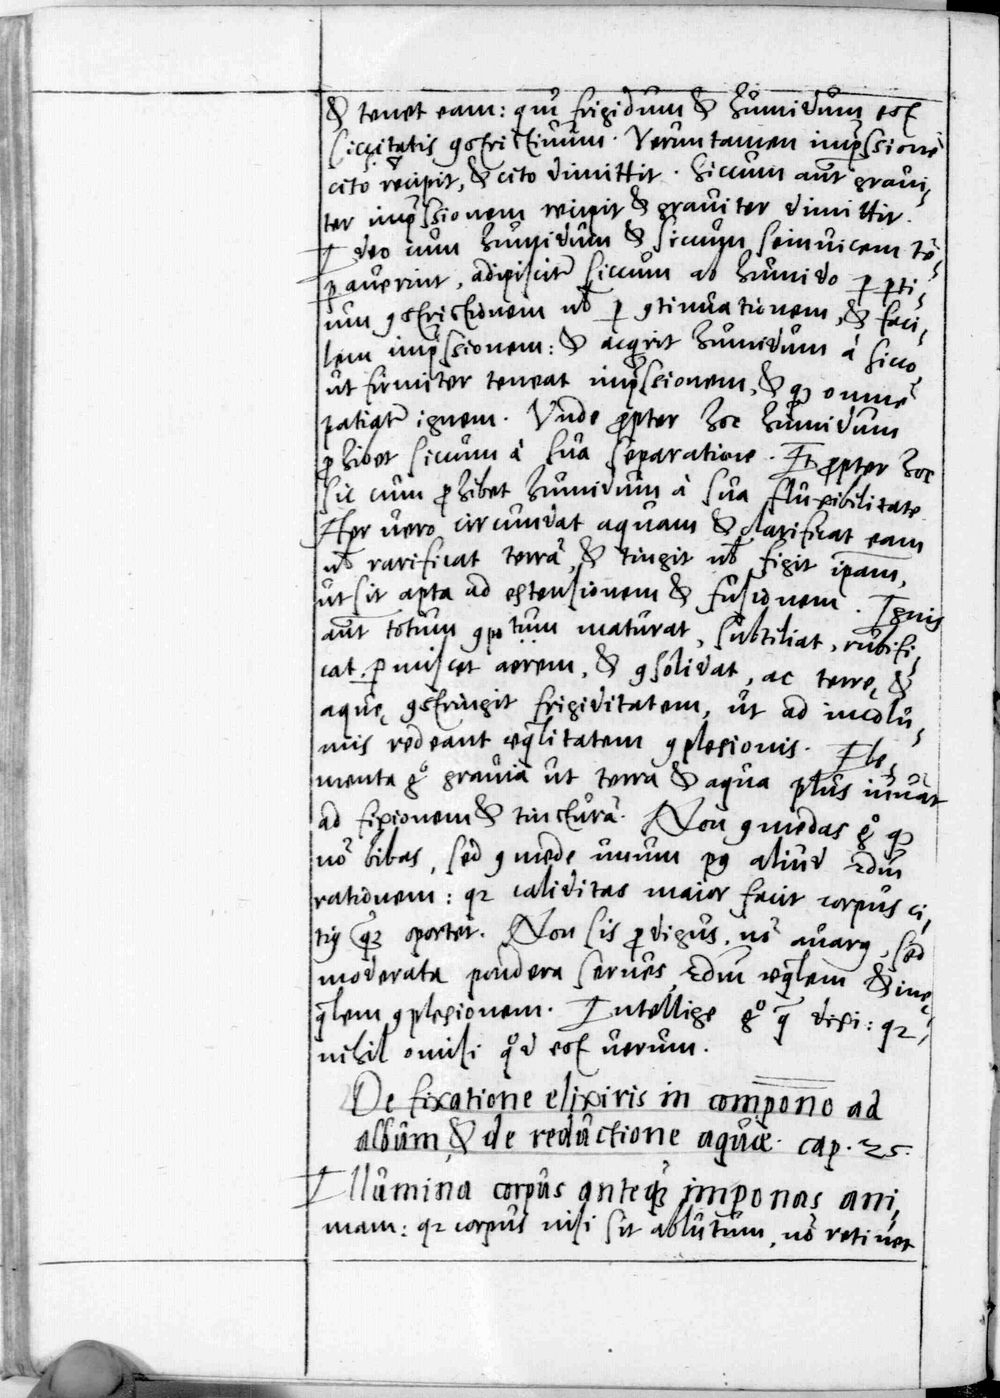 & tenet eam: qm̄ frigidum & humidum est
siccitatis 9strictiuum. Veruntamen imp̄ssionē
cito recipit, & cito dimittit. Siccum aūt graui,
ter imp̄ssionem recipit & grauiter dimittit.
Ideo cum humidum & siccum seinuicem tē,
ꝑauerint, adipiscit̄ siccum ab humido ꝑ ꝑti,
um 9strictionem ul̄ ꝑ 9tinuationem, & faci,
lem imp̄ssionem: & acq̇rit humidum à sicco,
ut firmiter teneat imp̄ssionem, & qd̄ omnē
patiat̄ ignem. Vnde ꝓpter hoc humidum
ꝓhibet siccum à sua separatione. Et ꝓpter hoc
siccum ꝓhibet humidum à sua fluxibilitate
Aer vero circumdat aquam & clarificat eam
ul̄ rarificat terrā, & tingit ul̄ figit ip̄am,
ut sit apta ad extensionem & fusionem. Ignis
aūt totum 9po tum maturat, subtiliat, rubifi,
cat ꝑmiscet aerem, & 9solidat, ac terrę &
aquę 9stringit frigiditatem, ut ad incolu,
mis redeant eq̄litatem 9plexionis. Ele,
menta gͦ grauia ut terra & aqua plus iuuāt
ad fixionem & tincturā. Non 9medas gͦ qd̄
nō bibas, sed 9mede unum p9 aliud 2dm̄
rationem: qꝛ caliditas maior facit corpus ci,
tiꝰ q̄ꝫ oportet. Non sis ꝓdigus, nō auarꝰ, sed
moderata pondera serues, 2dm̄ eq̄lem & inę,
q̄lem 9plexionem. Intellige gͦ q̄ dixi: qꝛ
nihil omisi qͦd est uerum.
De fixatione elixiris in compono ad
album, & de reductione aquæ. cap. 25.
Illumina corpus anteq̄ꝫ imponas ani,
mam: qꝛ corpus nisi sit ablutum, nō retinet